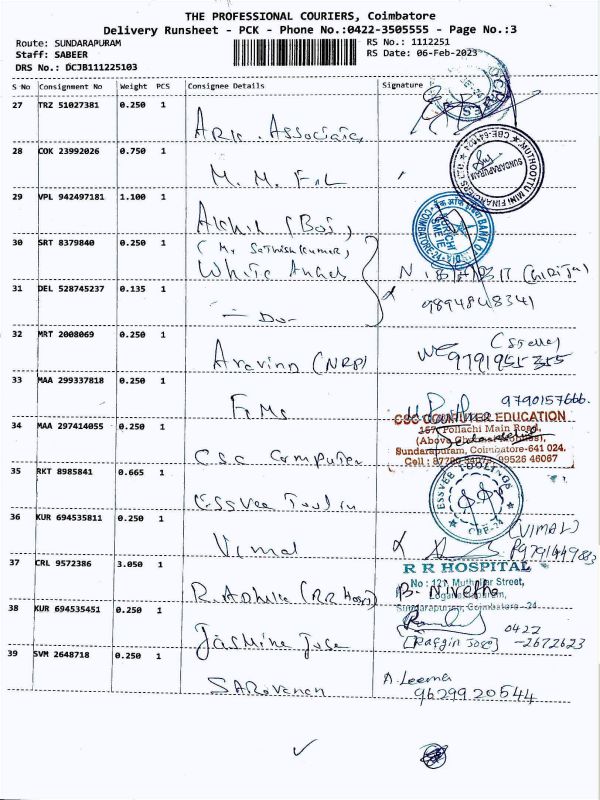 THE PROFESSIONAL COURIERS, Coimbatore
Delivery Runsheet - PCK - Phone No.:0422-3505555 - Page No.:3
Route: SUNDARAPURAM
RS No.: 1112251
Staff: SABEER
RS Date: 06-Feb-2023
DRS No.: DCJB111225103
S No Consignment No Weight PCS Consignee Details Signature
27 TRZ 51027381 0.250 1
Ark. Associates
28 COK 23992026 0.750 1
MUTHOOTTU MINI FINANCIERS LTD. CBE-641024
SUNDARAPURAM
M. M. Fin
29 VPL 942497181 1.100 1
Akhil (Boi)
BANK OF
COIMBATORE-24
30 SRT 8379840 0.250 1
(Mr Sathishkumar)
White Angels
31 DEL 528745237 0.135 1
9894848341
- Do -
32 MRT 2008069 0.250 1
Aravind (NRP)
9791955355
33 MAA 299337818 0.250 1
9790157666.
FIMS
34 MAA 297414055 0.250 1
CSC COMPUTER EDUCATION
167, Pollachi Main Road,
Sundarapuram, Coimbatore-641 024.
CSC Computer
35 RKT 8985841 0.665 1
ESSVEE TOOLINGS
CBE-24
Essvee Toolin
36 KUR 694535811 0.250 1
(VIMAL)
Vimal
37 CRL 9572386 3.050 1
R R HOSPITAL
R. Radhika (RR Hosp)
Sundarapuram, Coimbatore - 24
38 KUR 694535451 0.250 1
0422
-2672623
Jasmine Jose
39 SVM 2648718 0.250 1
A. Leema
9629920544
Saravanan